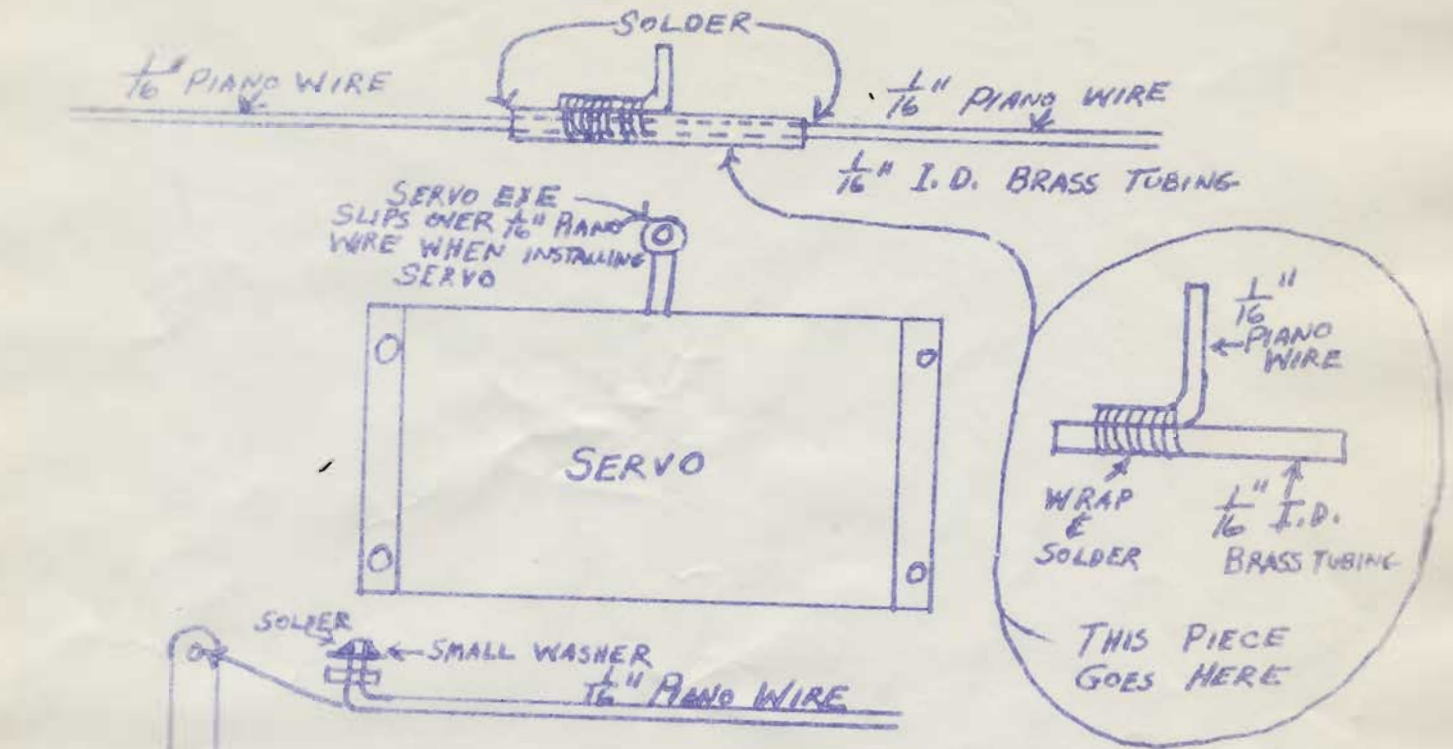 SOLDER
1/16" PIANO WIRE
1/16" PIANO WIRE
1/16" I.D. BRASS TUBING
SERVO EYE
SLIPS OVER 1/16" PIANO
WIRE WHEN INSTALLING
SERVO
SERVO
1/16"
PIANO
WIRE
WRAP
&
SOLDER
1/16" I.D.
BRASS TUBING
THIS PIECE
GOES HERE
SOLDER
SMALL WASHER
1/16" PIANO WIRE